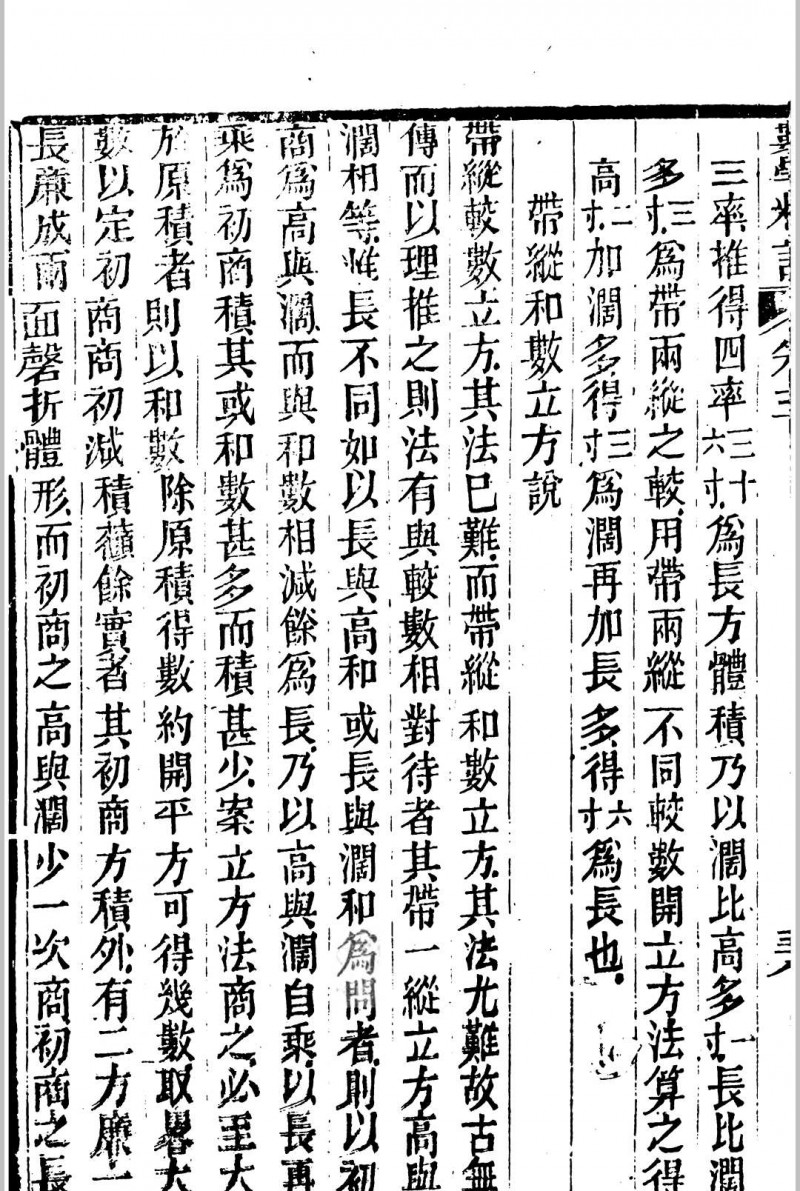 三率推得四率三十六寸爲長方體積乃以濶比高多一寸長比濶
多三寸爲帶兩縱之較用帶兩縱不同較數開立方法算之得
高二寸加濶多得三寸爲濶再加長多得六寸爲長也
帶縱和數立方說
帶縱較數立方其法已難而帶縱和數立方其法尤難故古無
傳而以理推之則法有與較數相對待者其帶一縱立方高與
濶相等惟長不同如以長與高和或長與濶和爲問者則以初
商爲高與濶而與和數相減餘爲長乃以高與濶自乘以長再
乘爲初商積其或和數甚多而積甚少案立方法商之必至大
於原積者則以和數除原積得數約開平方可得幾數取畧大
數以定初商商初減積蘱餘實者其初商方積外有二方廉一
長廉成兩面磬折體形而初商之高與濶少一次商初商之長